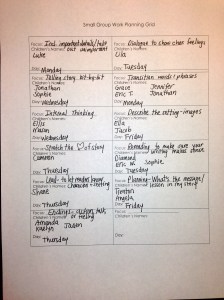 Small Group Work Planning Grid
Focus: Incl. important details/take out unimportant
Children's Names:
Luke
Date: Monday
Focus: Dialogue to show chars feelings
Children's Names:
Lila
Date: Tuesday
Focus: Telling story bit-by-bit
Children's Names:
Jonathan
Sophie
Date: Wednesday
Focus: Transition words/phrases
Children's Names:
Grace Jennifer
Eric T. Jonathan
Date: Monday
Focus: Internal Thinking
Children's Names:
Ellis
Date: Wednesday
Focus: Describe the setting-images
Children's Names:
Ella
Jacob
Date: Friday
Focus: Stretch the ♡ of story
Children's Names:
Cameron
Date: Thursday
Focus: Rereading to make sure your writing makes sense
Children's Names:
Diamond
Eric W. Sophie
Date: Tuesday
Focus: Lead - to let readers know character + setting
Children's Names:
Shane
Date: Thursday
Focus: Planning-What's the message/lesson in my story
Children's Names:
Trenton
Angela
Date: Friday
Focus: Endings-action, talk, or feeling
Children's Names:
Amanda
Kaitlyn Jaden
Date: Thursday
Focus:
Children's Names:
Date: